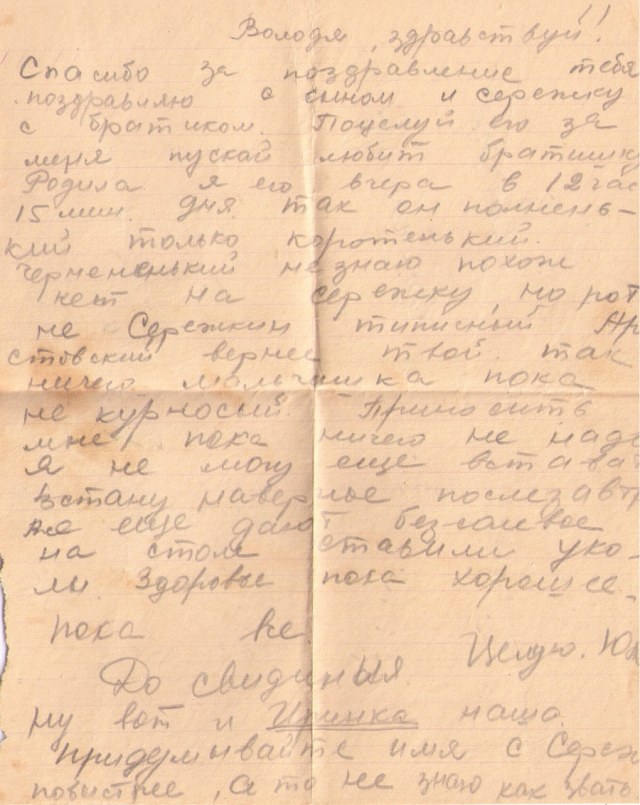 Володя, здравствуй!!
Спасибо за поздравление тебя
поздравляю с сыном и сережку
с братиком. Поцелуй его за
меня пускай любит братишку
Родила я его вчера в 12 час
15 мин. дня так он полнень-
кий только коротенький.
Черненький не знаю похож
нет на сережку, но рот
не Сережкин типисный Ар
стовский вернее твой. так
ничего мальчишка пока
не курносый. Приносить
мне пока ничего не надо
Я не могу еще встават
встану наверное послезавт
еще дают безсолевое
на стол ставили уко-
лы Здоровье пока хорошее.
пока все.
Целую. Юл
До свидиния.
ну вот и Иринка наша
придумывайте имя с Сереж
побыстрее, а то не знаю как звать.